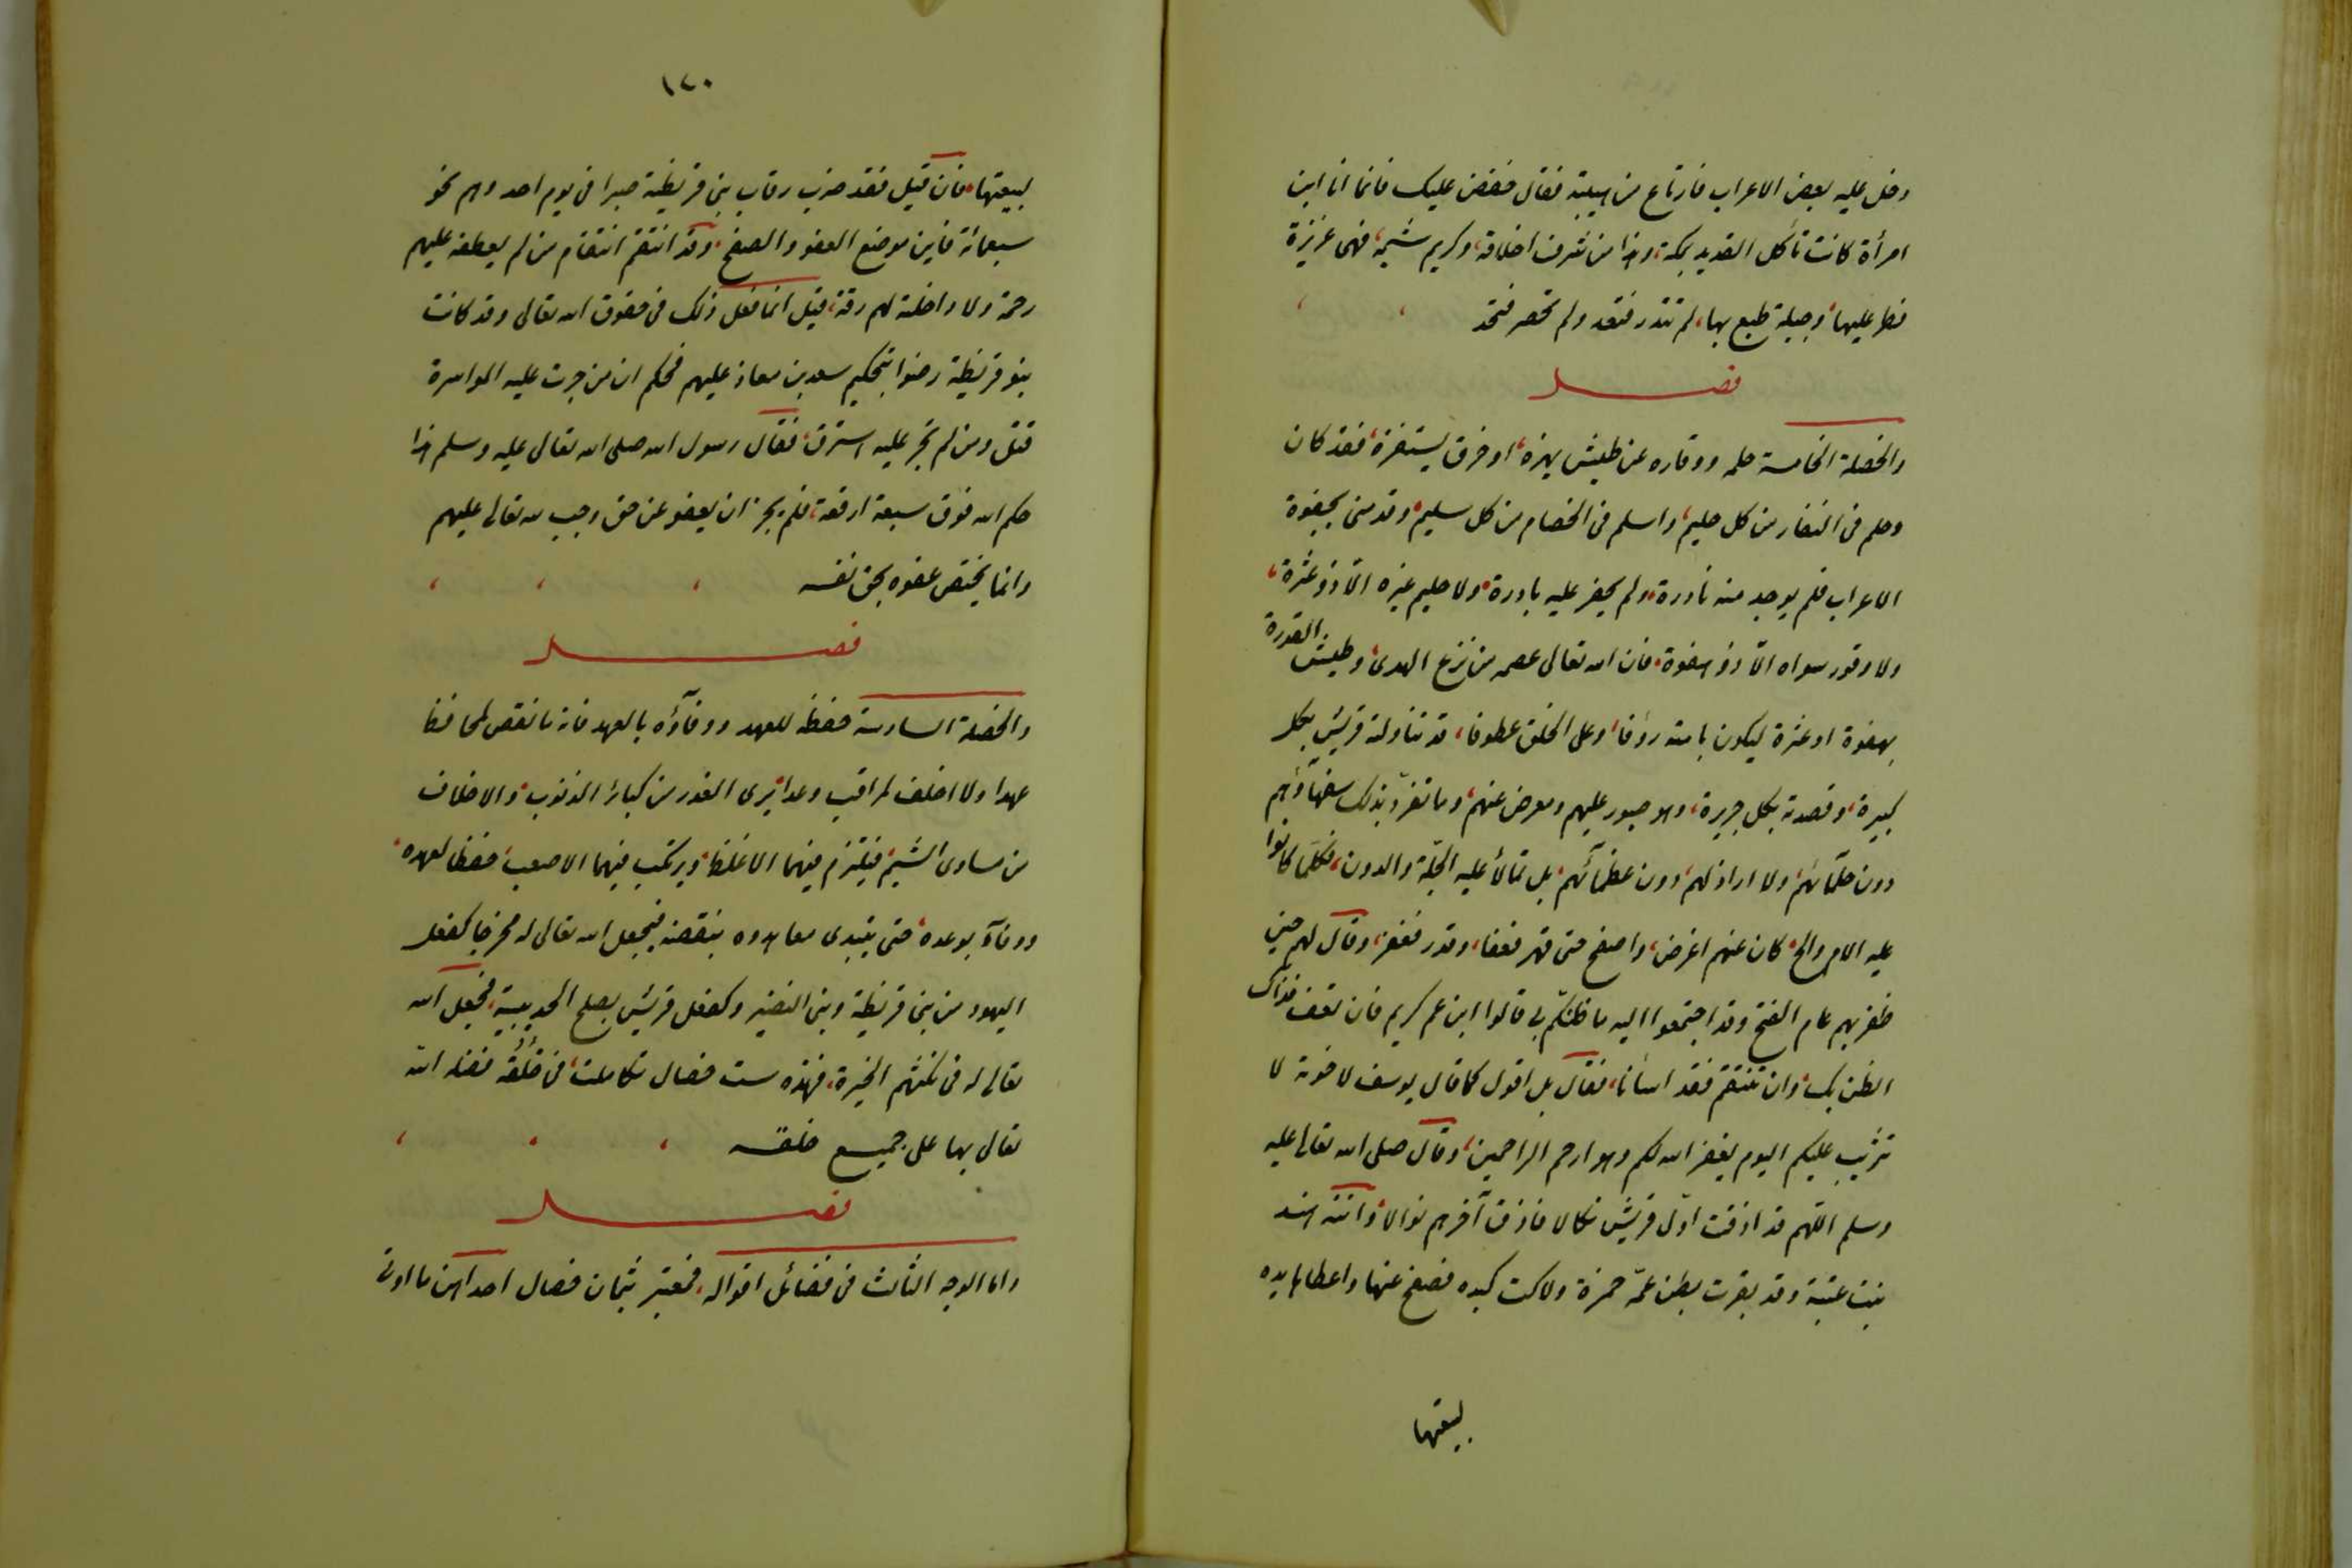 دخل عليه بعض الاعراب فارتاع من هيبته فقال خفض عليك فانما انا ابن
امرأة كانت تأكل القديد بمكة، وهذا من شرف اخلاقه، وكريم شيمه، فهى غريزة
فطر عليها، وجبلة طبع بها، لم تندر فتعد ولم تحصر فتحد
فصل
والخصلة الخامسة حلمه ووقاره عن طيش يهزه، او خرق يستفزه، فقد كان
وحلم فى النفار من كل حليم، واسلم فى الخصام من كل سليم، وقد منى بجفوة
الاعراب فلم يوجد منه نادرة، ولم يحفز عليه بادرة، ولا حليم غيره الا ذو عثرة،
ولا وقور سواه الا ذو هفوة، فان الله تعالى عصمه من نزع الهدى، وطيش القدرة
بهفوة او عثرة ليكون بامته رؤفا، وعلى الخلق عطوفا، قد تناولته قريش بكل
كبيرة، وقصدته بكل جريرة، وهو صبور عليهم ومعرض عنهم، وما تفرد بذلك سفهاؤهم
دون حلمائهم، ولا اراذلهم، دون عظمائهم، بل تمالأ عليه الجلة والدون، فكلما كانوا
عليه الامر والح، كان عنهم اعرض، واصفح حتى قهر فعفا، وقدر فغفر، وقال لهم حين
ظفر بهم عام الفتح وقد اجتمعوا اليه ما ظنكم بى قالوا ابن عم كريم فان تعف فذاك
الظن بك، وان تنتقم فقد اسأنا، فقال بل اقول كما قال يوسف لاخوته لا
تثريب عليكم اليوم يغفر الله لكم وهو ارحم الراحمين، وقال صلى الله تعالى عليه
وسلم اللهم قد اذقت اول قريش نكالا فاذق آخرهم نوالا، واتته هند
بنت عتبة وقد بقرت بطن عمه حمزة ولاكت كبده فصفح عنها واعطاها يده
لبيعتها
١٤٠
لبيعتها، فان قيل فقد ضرب رقاب بنى قريظة صبرا فى يوم احد وهم نحو
سبعمائة فاين موضع العفو والصفح، وقد انتقم انتقام من لم يعطفه عليهم
رحمة ولا داخلته لهم رقة، قيل انما فعل ذلك فى حقوق الله تعالى وقد كانت
بنو قريظة رضوا بتحكيم سعد بن معاذ عليهم فحكم ان من جرت عليه المواسرة
قتل ومن لم تجر عليه استرق، فقال رسول الله صلى الله تعالى عليه وسلم هذا
حكم الله فوق سبعة ارقعة، فلم يجز ان يعفو عن حق وجب لله تعالى عليهم
وانما يختص عفوه بحق نفسه
فصل
والخصلة السادسة حفظه للعهد ووفاؤه بالعهد فانه ما نقض لمحافظ
عهدا ولا اخلف لمراقب وعدا، يرى الغدر من كبائر الذنوب، والاخلاف
من مساوى الشيم، فيلتزم فيهما الاغلظ، ويرتكب فيهما الاصعب، حفظا لعهده،
ووفاء بوعده، حتى يبتدى معاهدوه بنقضه فيجعل الله تعالى له مخرجا كفعل
اليهود من بنى قريظة وبنى النضير وكفعل قريش بصلح الحديبية، فجعل الله
تعالى له فى نكثهم الخيرة، فهذه ست خصال تكاملت، فى خلقه فضله الله
تعالى بها على جميع خلقه
فصل
واما الوجه الثالث فى فضائل اقواله، فمعتبر بثمان خصال احداهن ما اوتى